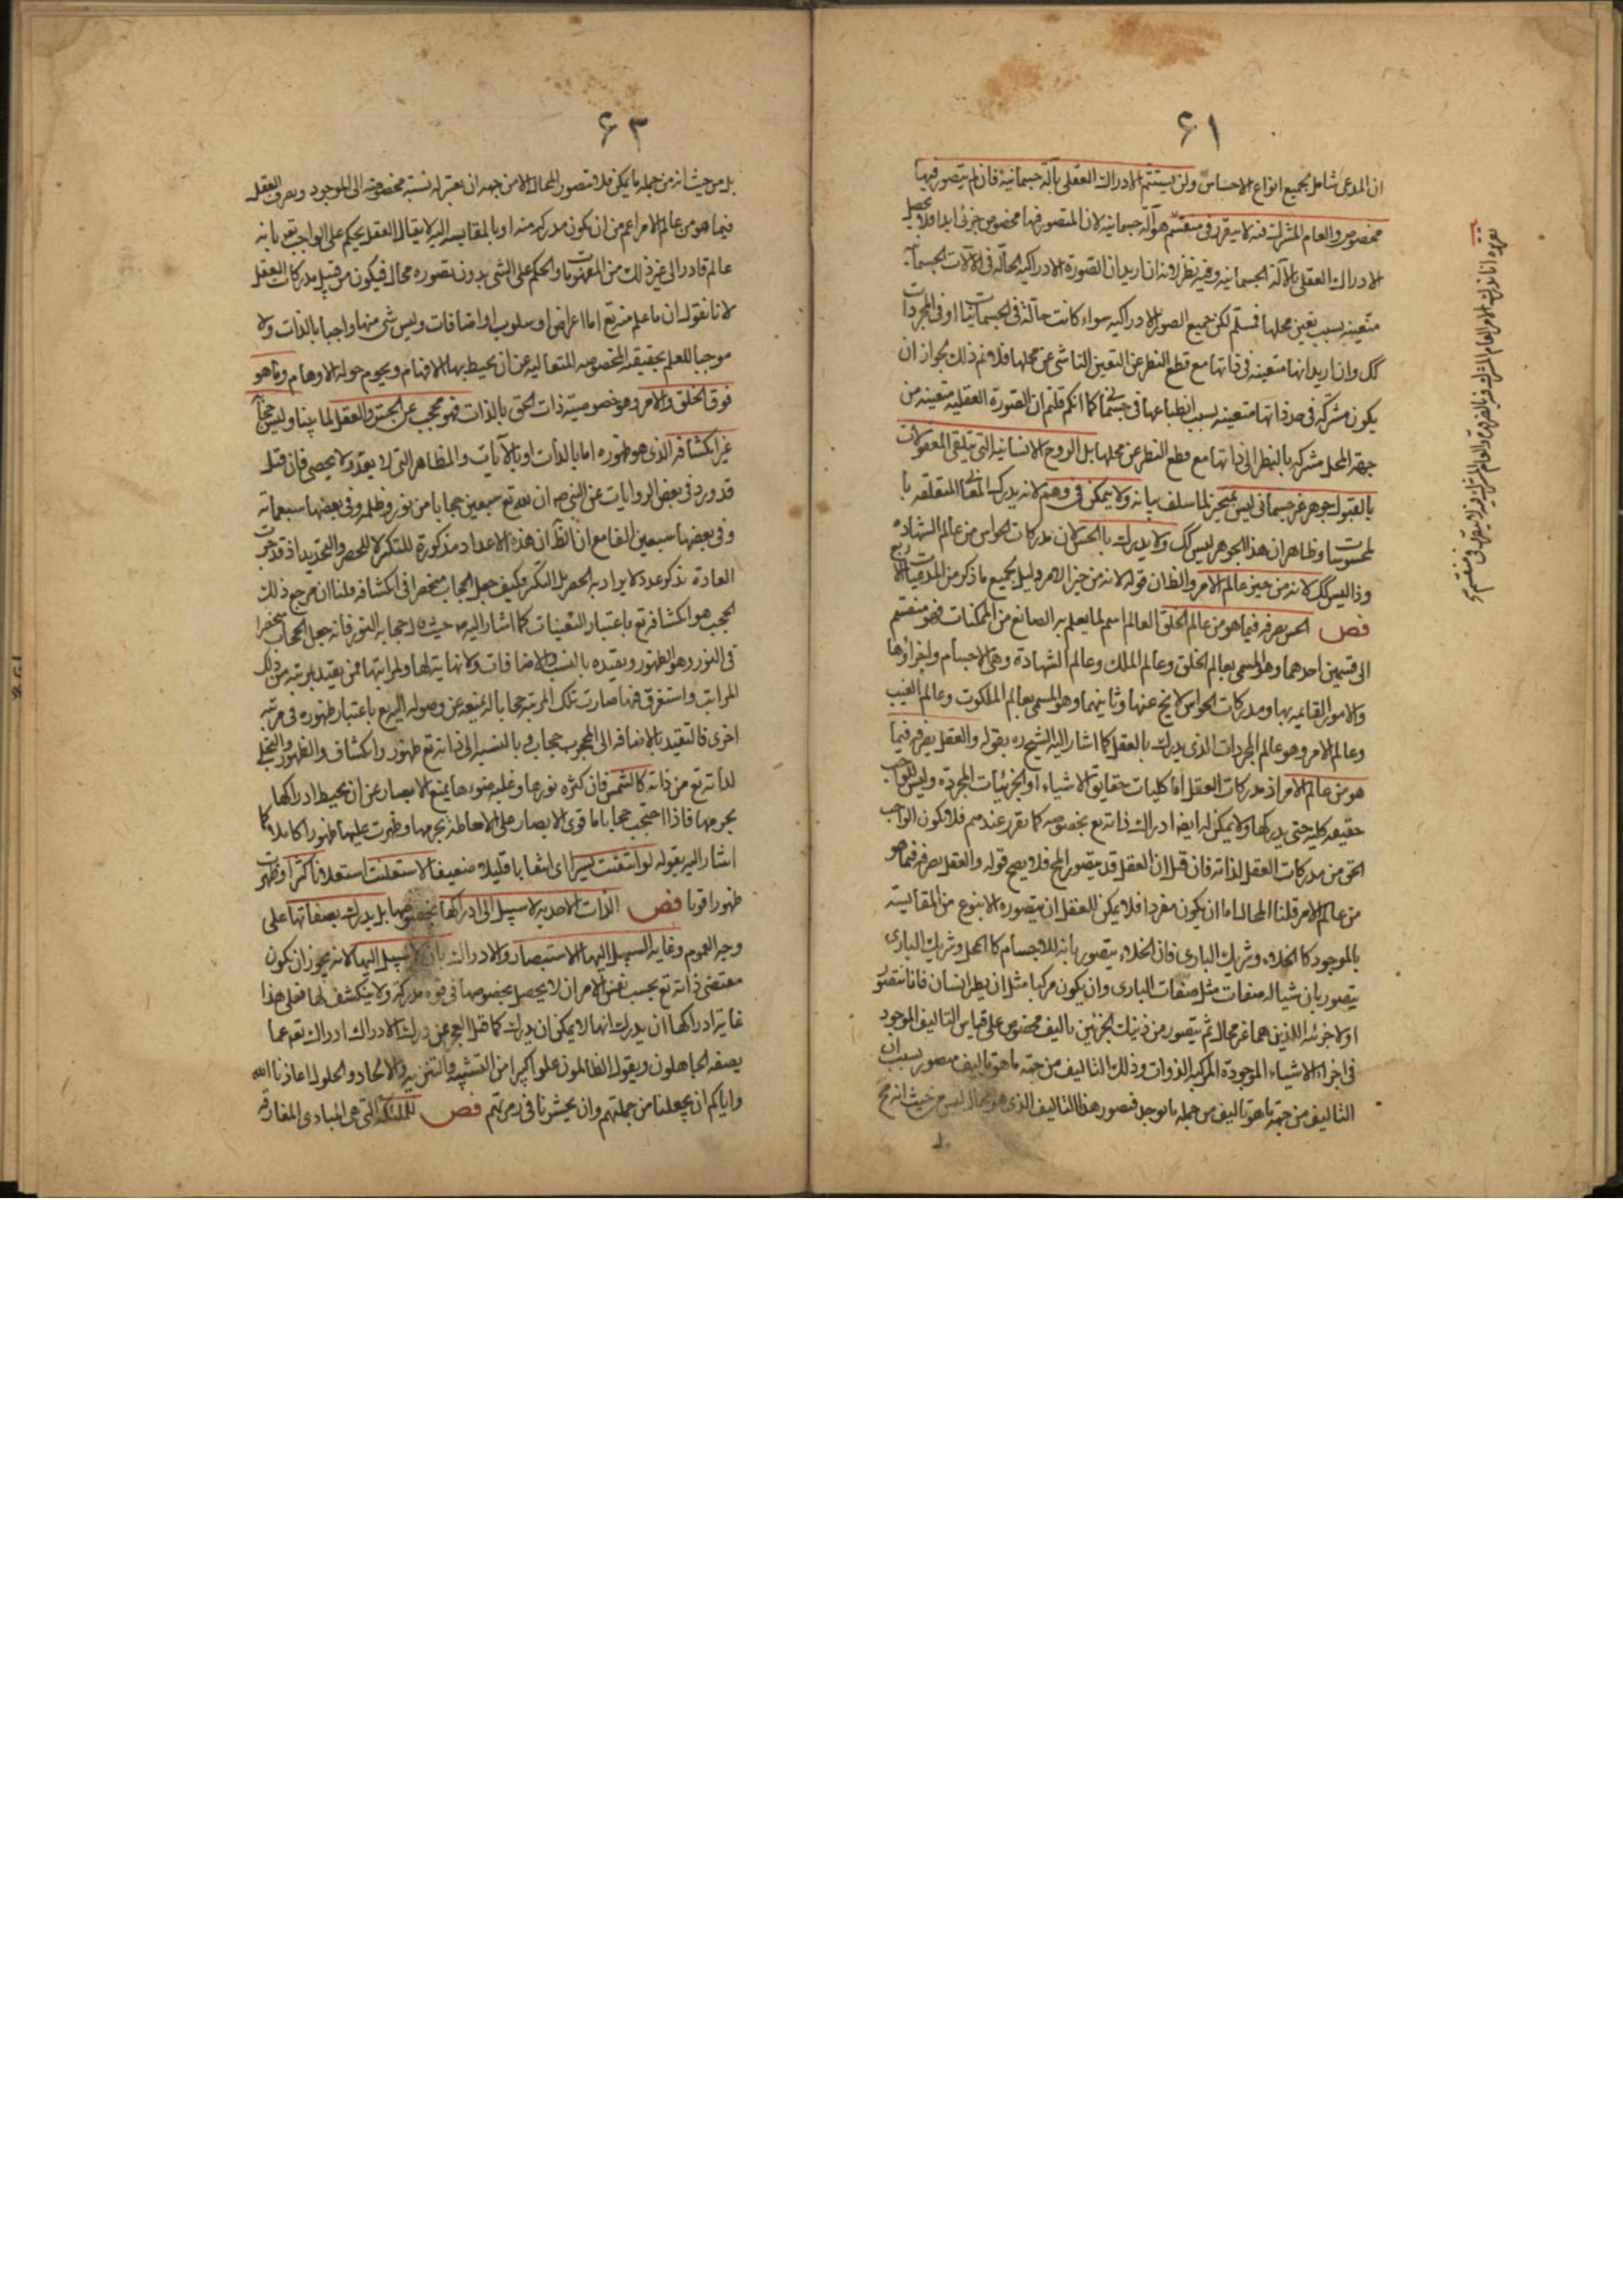 ٤١
ان المدعى شامل لجميع انواع الاحساس ولن يستتم الادراك العقلى بآلة جسمانية فان المتصور فيها
مخصوص والعام المشترك فيه لا يتقرر فى منقسم هو آلة جسمانية لان المتصور فيها مخصوص جزئى ابدا فلا يحصل
الادراك العقلى بالآلة الجسمانية وفيه نظر لانه ان اريد ان الصورة الادراكية الحالة فى الآلات الجسمانية
متعينة بسبب تعين محلها فمسلم لكن جميع الصور الادراكية سواء كانت حالة فى الجسمانيات او فى المجردات
كك وان اريد انها متعينة فى ذاتها مع قطع النظر عن التعين الناشى عن محلها فلا نم ذلك لجواز ان
يكون مشتركة فى حد ذاتها متعينة بسبب انطباعها فى جسم كما انكم قلتم ان الصورة العقلية متعينة من
جهة المحل مشتركة بالنظر الى ذاتها مع قطع النظر عن محلها بل الروح الانسانية التى يتلقى المعقولات
بالقبول جوهر غير جسمانى ليس بمتحيز لما سلف بيانه ولا يتمكن فى وهم لانه يدرك المعانى المتعلقة با
لمحسوسات وظاهر ان هذا الجوهر ليس كك ولا يدرك بالحس لان مدركات الحواس من عالم الشهادة
وذا ليس كك لانه من حيز عالم الامر والظ ان قوله لانه من حيز الامر دليل لجميع ما ذكر من المدعيات الاربع
فص الحس تصرفه فيما هو من عالم الخلق العالم اسم لما يعلم به الصانع من الممكنات فهو منقسم
الى قسمين احدهما وهو المسمى بعالم الخلق وعالم الملك وعالم الشهادة وهى الاجسام واجزاؤها
والامور القايمة بها ومدركات الحواس لا يخ عنها وثانيهما وهو المسمى بعالم الملكوت وعالم الغيب
وعالم الامر وهو عالم المجردات الذى يدرك بالعقل كما اشار اليه الشيخ ره بقوله والعقل يصرفه فيما
هو من عالم الامر اذ مدركات العقل اما كليات حقايق الاشياء او الجزئيات المجردة وليس للواجب
حقيقة كلية حتى يدركها ولا يمكن له ايضا ادراك ذاته تع بخصوصه كما تقرر عندهم فلا يكون الواجب
الحق من مدركات العقل لذاته فان قيل ان العقل قد يتصور المح فلا يصح قوله والعقل يصرفه فيما هو
من عالم الامر قلنا المحال اما ان يكون مفردا فلا يمكن للعقل ان يتصوره الا بنوع من المقايسة
بالموجود كالخلاء وشريك البارى فان الخلاء يتصور بانه للاجسام كالمحل وشريك البارى
يتصور بان شيا له صفات مثل صفات البارى وان يكون مركبا مثل ان يطير انسان فانا نتصور
اولا جزئيه اللذين هما غير محال ثم يتصور من ذينك الجزئين تاليف مخصوص على قياس التاليف الموجود
فى اجزاء الاشياء الموجودة المركبة الذوات وذلك التاليف من جهة ما هو تاليف متصور بسبب ان
التاليف من جهة ما هو تاليف من جملة ما يوجد فتصور هذا التاليف الذى هو محال ليس من حيث انه مح
٤٣
بل من حيث انه من جملة ما يمكن فلا يتصور المحال الا من جهة ان يعتبر له نسبة مخصوصة الى الموجود وتصرف العقل
فيما هو من عالم الامر اعم من ان يكون مدركه منه او بالمقايسة اليه لا يقال العقل يحكم على الواجب تع بانه
عالم قادر الى غير ذلك من المفهومات والحكم على الشى بدون تصوره محال فيكون من قبيل مدركات العقل
لانا نقول ان ما علم منه تع اما اعراض او سلوب او اضافات وليس شى منها واجبا بالذات ولا
موجبا للعلم بحقيقته المخصوصة المتعالية عن ان يحيط بها الافهام ويحوم حوله الاوهام وما هو
فوق الخلق والامر وهو خصوصية ذات الحق بالذات فهو محجب عن الحس والعقل لما بينا وليس حجابه
غير انكشافه الذى هو ظهوره اما بالذات او بالآيات والمظاهر التى لا يعد ولا يحصى فان قيل
قد ورد فى بعض الروايات عن النبى ص ان لله تع سبعين حجابا من نور وظلمة وفى بعضها سبعماتة
وفى بعضها سبعين الفا مع ان الظ ان هذه الاعداد مذكورة للتكثر لا للحصر والتحديد اذ قد جرت
العادة بذكر عدد لا يراد به الحصر بل التكثر فكيف جعل الحجاب منحصرا فى انكشافه قلنا ان مرجع ذلك
الحجب هو انكشافه تع باعتبار التعينات كما اشار اليه ص حيث قال حجابه النور فانه جعل الحجاب منحصرا
فى النور وهو الظهور وتقيده بالنسب والاضافات ولا نهاية لها ولمراتبها فمن تقيد بمرتبة من ذلك
المراتب واستغرق فيها صارت تلك المرتبة حجابا له تمنعه عن وصوله اليه تع باعتبار ظهوره فى مرتبة
اخرى فالتقيد بالاضافة الى المحجوب حجاب وبالنسبة الى ذاته تع ظهور وانكشاف والظهور والتجلى
لذاته تع من ذاته كالشمس فان كثرة نورها وغلبة ضوءها يمنع الابصار عن ان يحيط ادراكها
بجرمها فاذا احتجب حجابا ما قوى الابصار على الاحاطة بجرمها وظهرت عليها ظهورا كاملا كما
اشار اليه بقوله لو انتقبت يسيرا اى انتقابا قليلا ضعيفا لاستعلنت استعلانا كثيرا وظهرت
ظهورا قويا فص الذات الاحدية لا سبيل الى ادراكها بخصوصها بل يدرك بصفاتها على
وجه العموم وغاية السبيل اليها الاستبصار والادراك بان لا سبيل اليها لانه يجوز ان يكون
مقتضى ذاته تع بحسب نفس الامر ان لا يحصل بخصوصها فى قوة مدركة ولا ينكشف لها فعلى هذا
غاية ادراكها ان يدرك انها لا يمكن ان يدرك كما قيل العجز عن درك الادراك ادراك تع عما
يصفه الجاهلون ويقول الظالمون علوا كبيرا من التشبيه والتنزيه والالحاد والحلول اعاذنا الله
واياكم ان يجعلنا من جملتهم وان يحشرنا فى زمرتهم فص للملئكة التى هى المبادى المفارقة